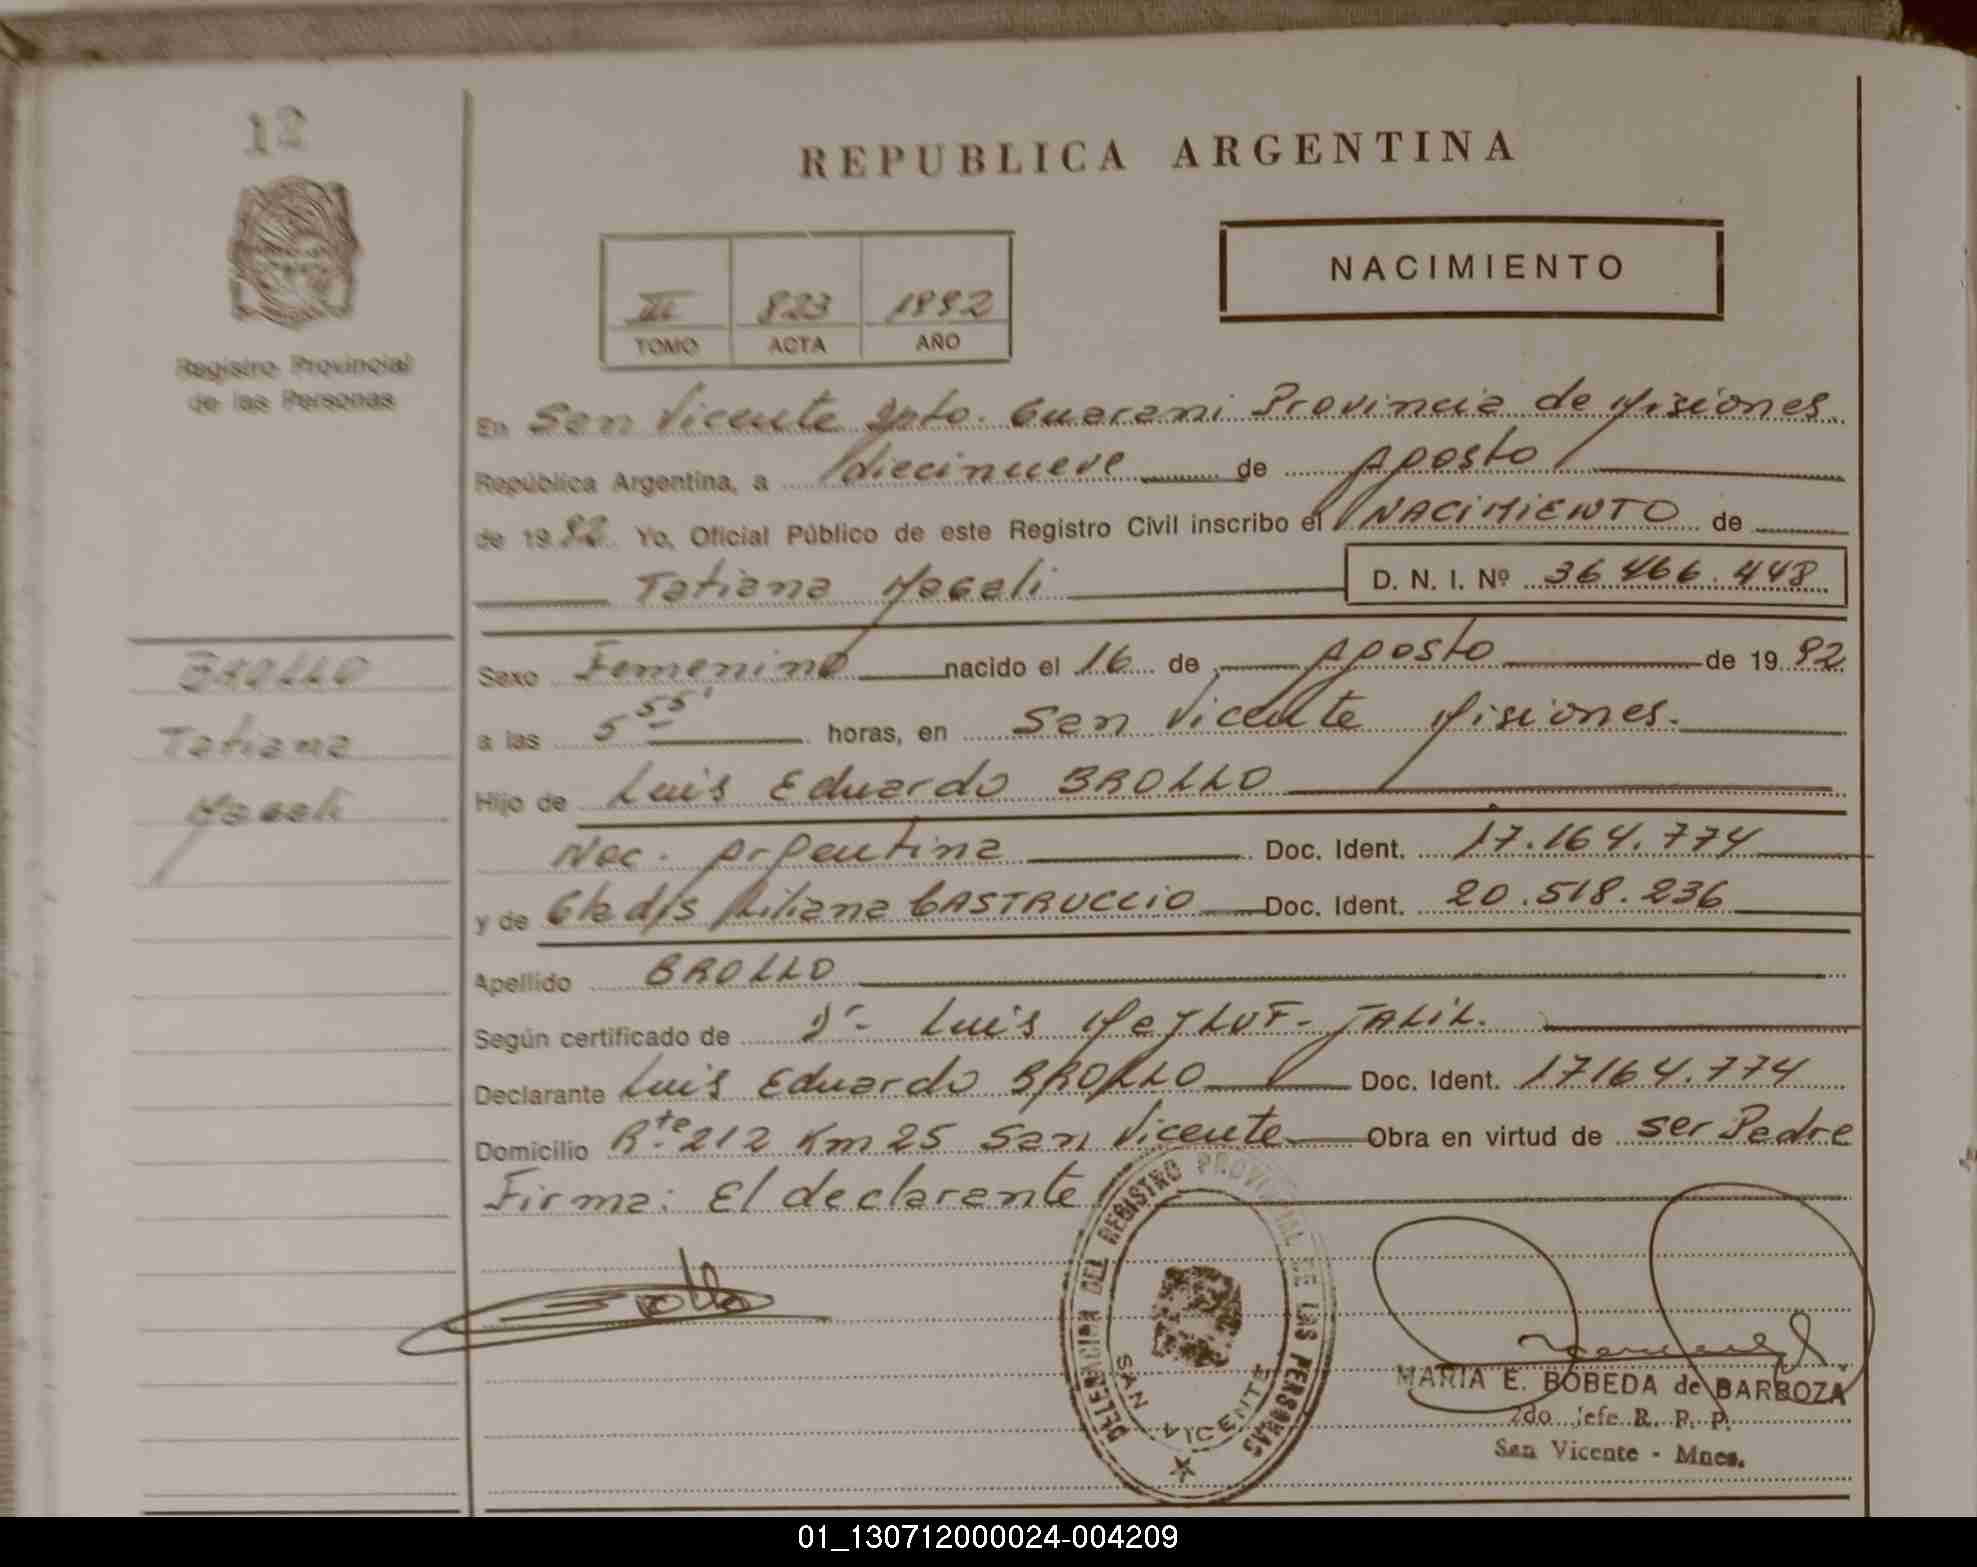 12
REPUBLICA ARGENTINA
NACIMIENTO
III 823 1992
TOMO ACTA AÑO
Registro Provincial
de las Personas
En San Vicente Dpto. Guarani Provincia de Misiones.
República Argentina, a diecinueve de Agosto
de 1992 Yo, Oficial Público de este Registro Civil inscribo el NACIMIENTO de
Tatiana Magali D. N. I. Nº 36.466.448
BROLLO
Tatiana
Magali
Sexo Femenino nacido el 16 de Agosto de 1992
a las 5 55' horas, en San Vicente Misiones.
Hijo de Luis Eduardo BROLLO
Nac. Argentina Doc. Ident. 17.164.774
y de Gladis Liliana CASTRUCCIO Doc. Ident. 20.518.236
Apellido BROLLO
Según certificado de Dr- Luis JALIL.
Declarante Luis Eduardo BROLLO Doc. Ident. 17164.774
Domicilio Rta 212 Km 25 San Vicente Obra en virtud de ser Padre
Firma: El declarante
Brollo
DELEGACION DEL REGISTRO PROVINCIAL DE LAS PERSONAS
SAN VICENTE
MARIA E. BOBEDA de BARBOZA
2do Jefe R. P. P.
San Vicente - Mnes.
01_130712000024-004209